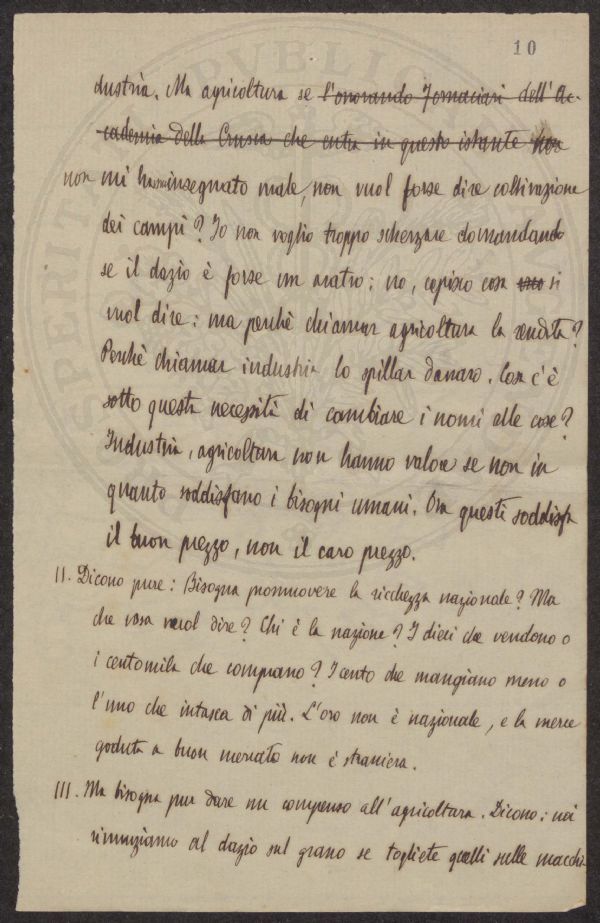 10
dustria. Ma agricoltura se l'onorando Fornaciari dell'Ac-
cademia della Crusca che entra in questo istante non
non mi hanno insegnato male, non vuol forse dire coltivazione
dei campi? Io non voglio troppo scherzare domandando
se il dazio è forse un aratro: no, capisco cosa si
vuol dire: ma perchè chiamar agricoltura la rendita?
Perchè chiamar industria lo spillar danaro. Cosa c'è
sotto questa necessità di cambiare i nomi alle cose?
Industria, agricoltura non hanno valore se non in
quanto soddisfano i bisogni umani. Ora questi soddisfa
il buon prezzo, non il caro prezzo.
II. Dicono pure: Bisogna promuovere la ricchezza nazionale? Ma
che cosa vuol dire? Chi è la nazione? I dieci che vendono o
i centomila che comprano? I cento che mangiano meno o
l'uno che intasca di più. L'oro non è nazionale, e la merce
goduta a buon mercato non è straniera.
III. Ma bisogna pur dare un compenso all'agricoltura. Dicono: noi
rinunziamo al dazio sul grano se togliete quelli sulle macchi